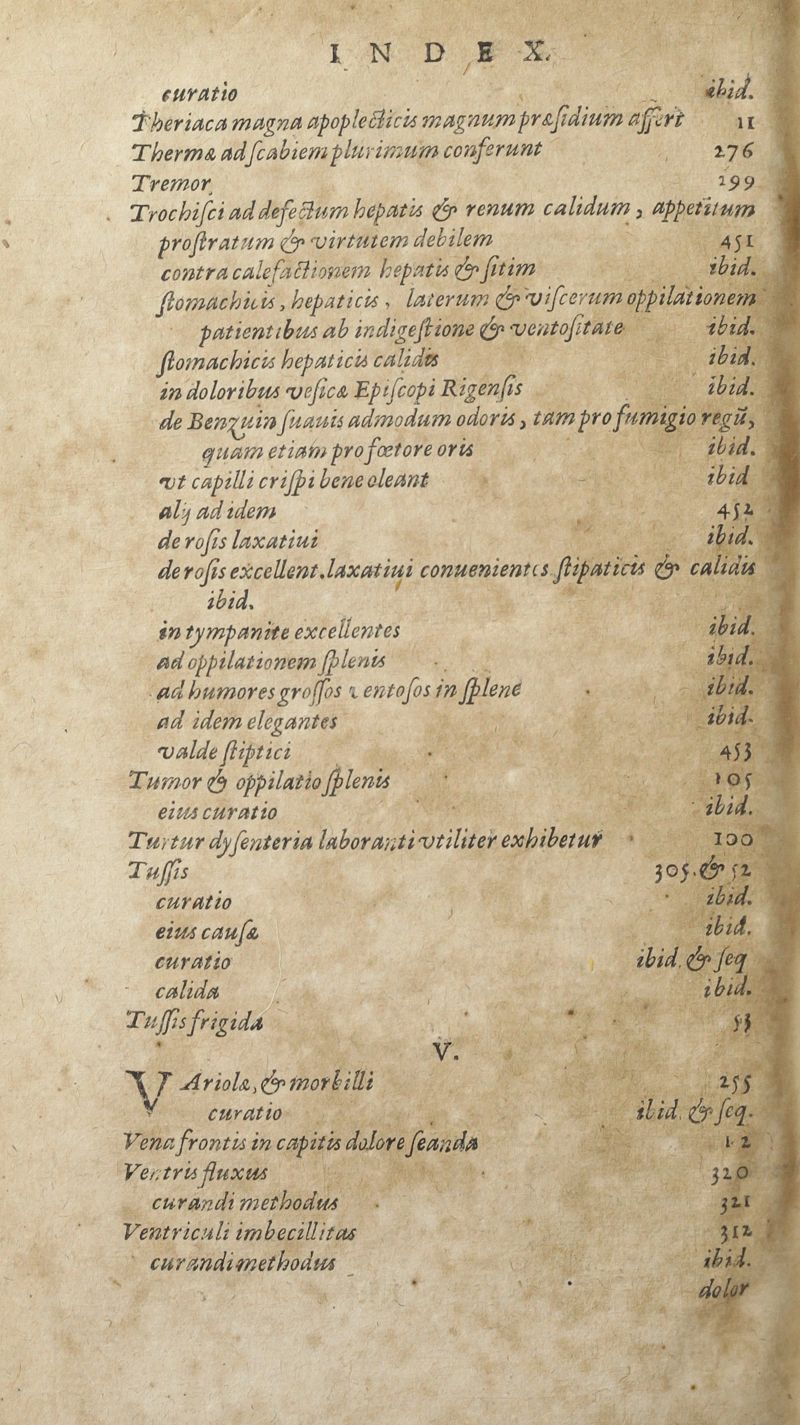 INDEX.
curatio ibid.
Theriaca magna apoplecticis magnum præsidium affert 11
Thermæ ad scabiem plurimum conferunt 276
Tremor 199
Trochisci ad defectum hepatis & renum calidum, appetitum
prostratum & virtutem debilem 451
contra calefactionem hepatis & sitim ibid.
stomachicis, hepaticis, laterum & viscerum oppilationem
patientibus ab indigestione & ventositate ibid.
stomachicis hepaticis calidis ibid.
in doloribus vesicæ Episcopi Rigensis ibid.
de Benzuin suauis admodum odoris, tam pro fumigio regij,
quam etiam pro fœtore oris ibid.
vt capilli crispi bene oleant ibid
alij ad idem 452
de rosis laxatiui ibid.
de rosis excellent. laxatiui conuenientes stipaticis & calidis
ibid.
in tympanite excellentes ibid.
ad oppilationem splenis ibid.
ad humores grossos ventosos in splene ibid.
ad idem elegantes ibid.
valde stiptici 453
Tumor & oppilatio splenis 105
eius curatio ibid.
Turtur dysenteria laboranti vtiliter exhibetur 100
Tussis 305. & 52
curatio ibid.
eius causæ ibid.
curatio ibid. & seq
calida ibid.
Tussis frigida 53
V.
VAriolæ, & morbilli 255
curatio ibid. & seq.
Vena frontis in capitis dolore secanda
Ventris fluxus 320
curandi methodus 321
Ventriculi imbecillitas 312
curandi methodus ibid.
dolor